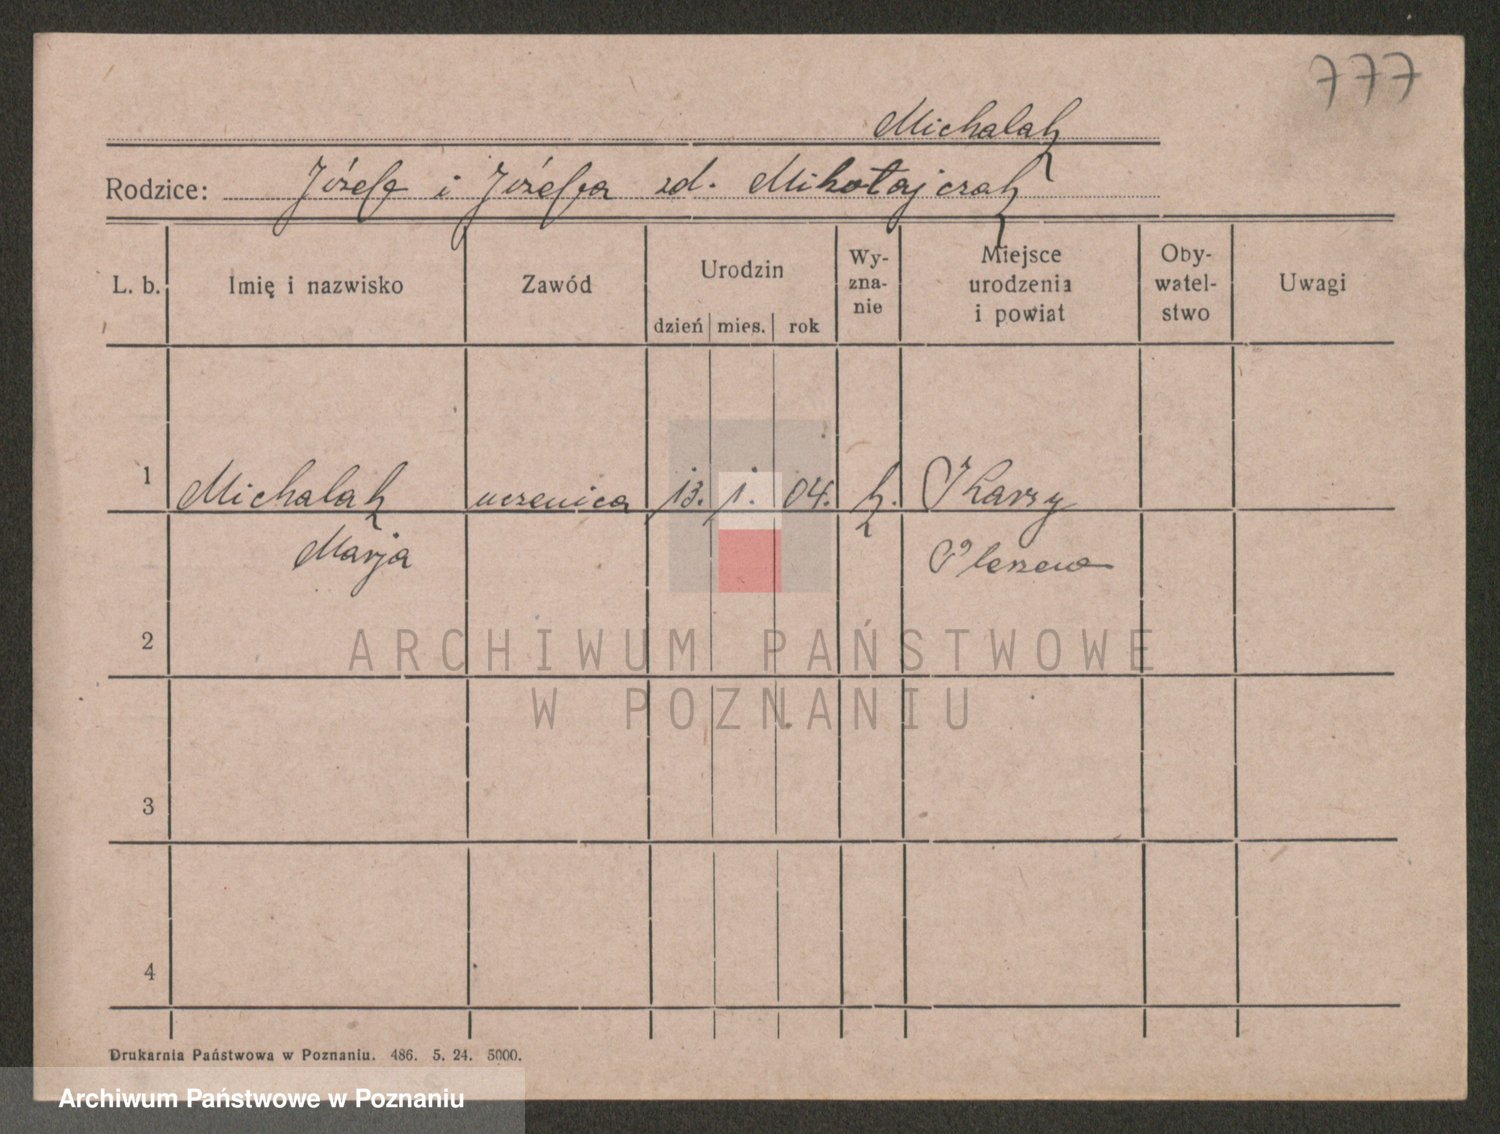 777
Michalak
Rodzice: Józef i Józefa zd. Mikołajczak
L. b. Imię i nazwisko Zawód Urodzin Wy-zna-nie Miejsce urodzenia i powiat Oby-watel-stwo Uwagi
dzień mies. rok
1 Michalak uczenica 13. 1. 04. k. Karsy
Marja Pleszew
2
ARCHIWUM PAŃSTWOWE
W POZNANIU
3
4
Drukarnia Państwowa w Poznaniu. 486. 5. 24. 5000.
Archiwum Państwowe w Poznaniu